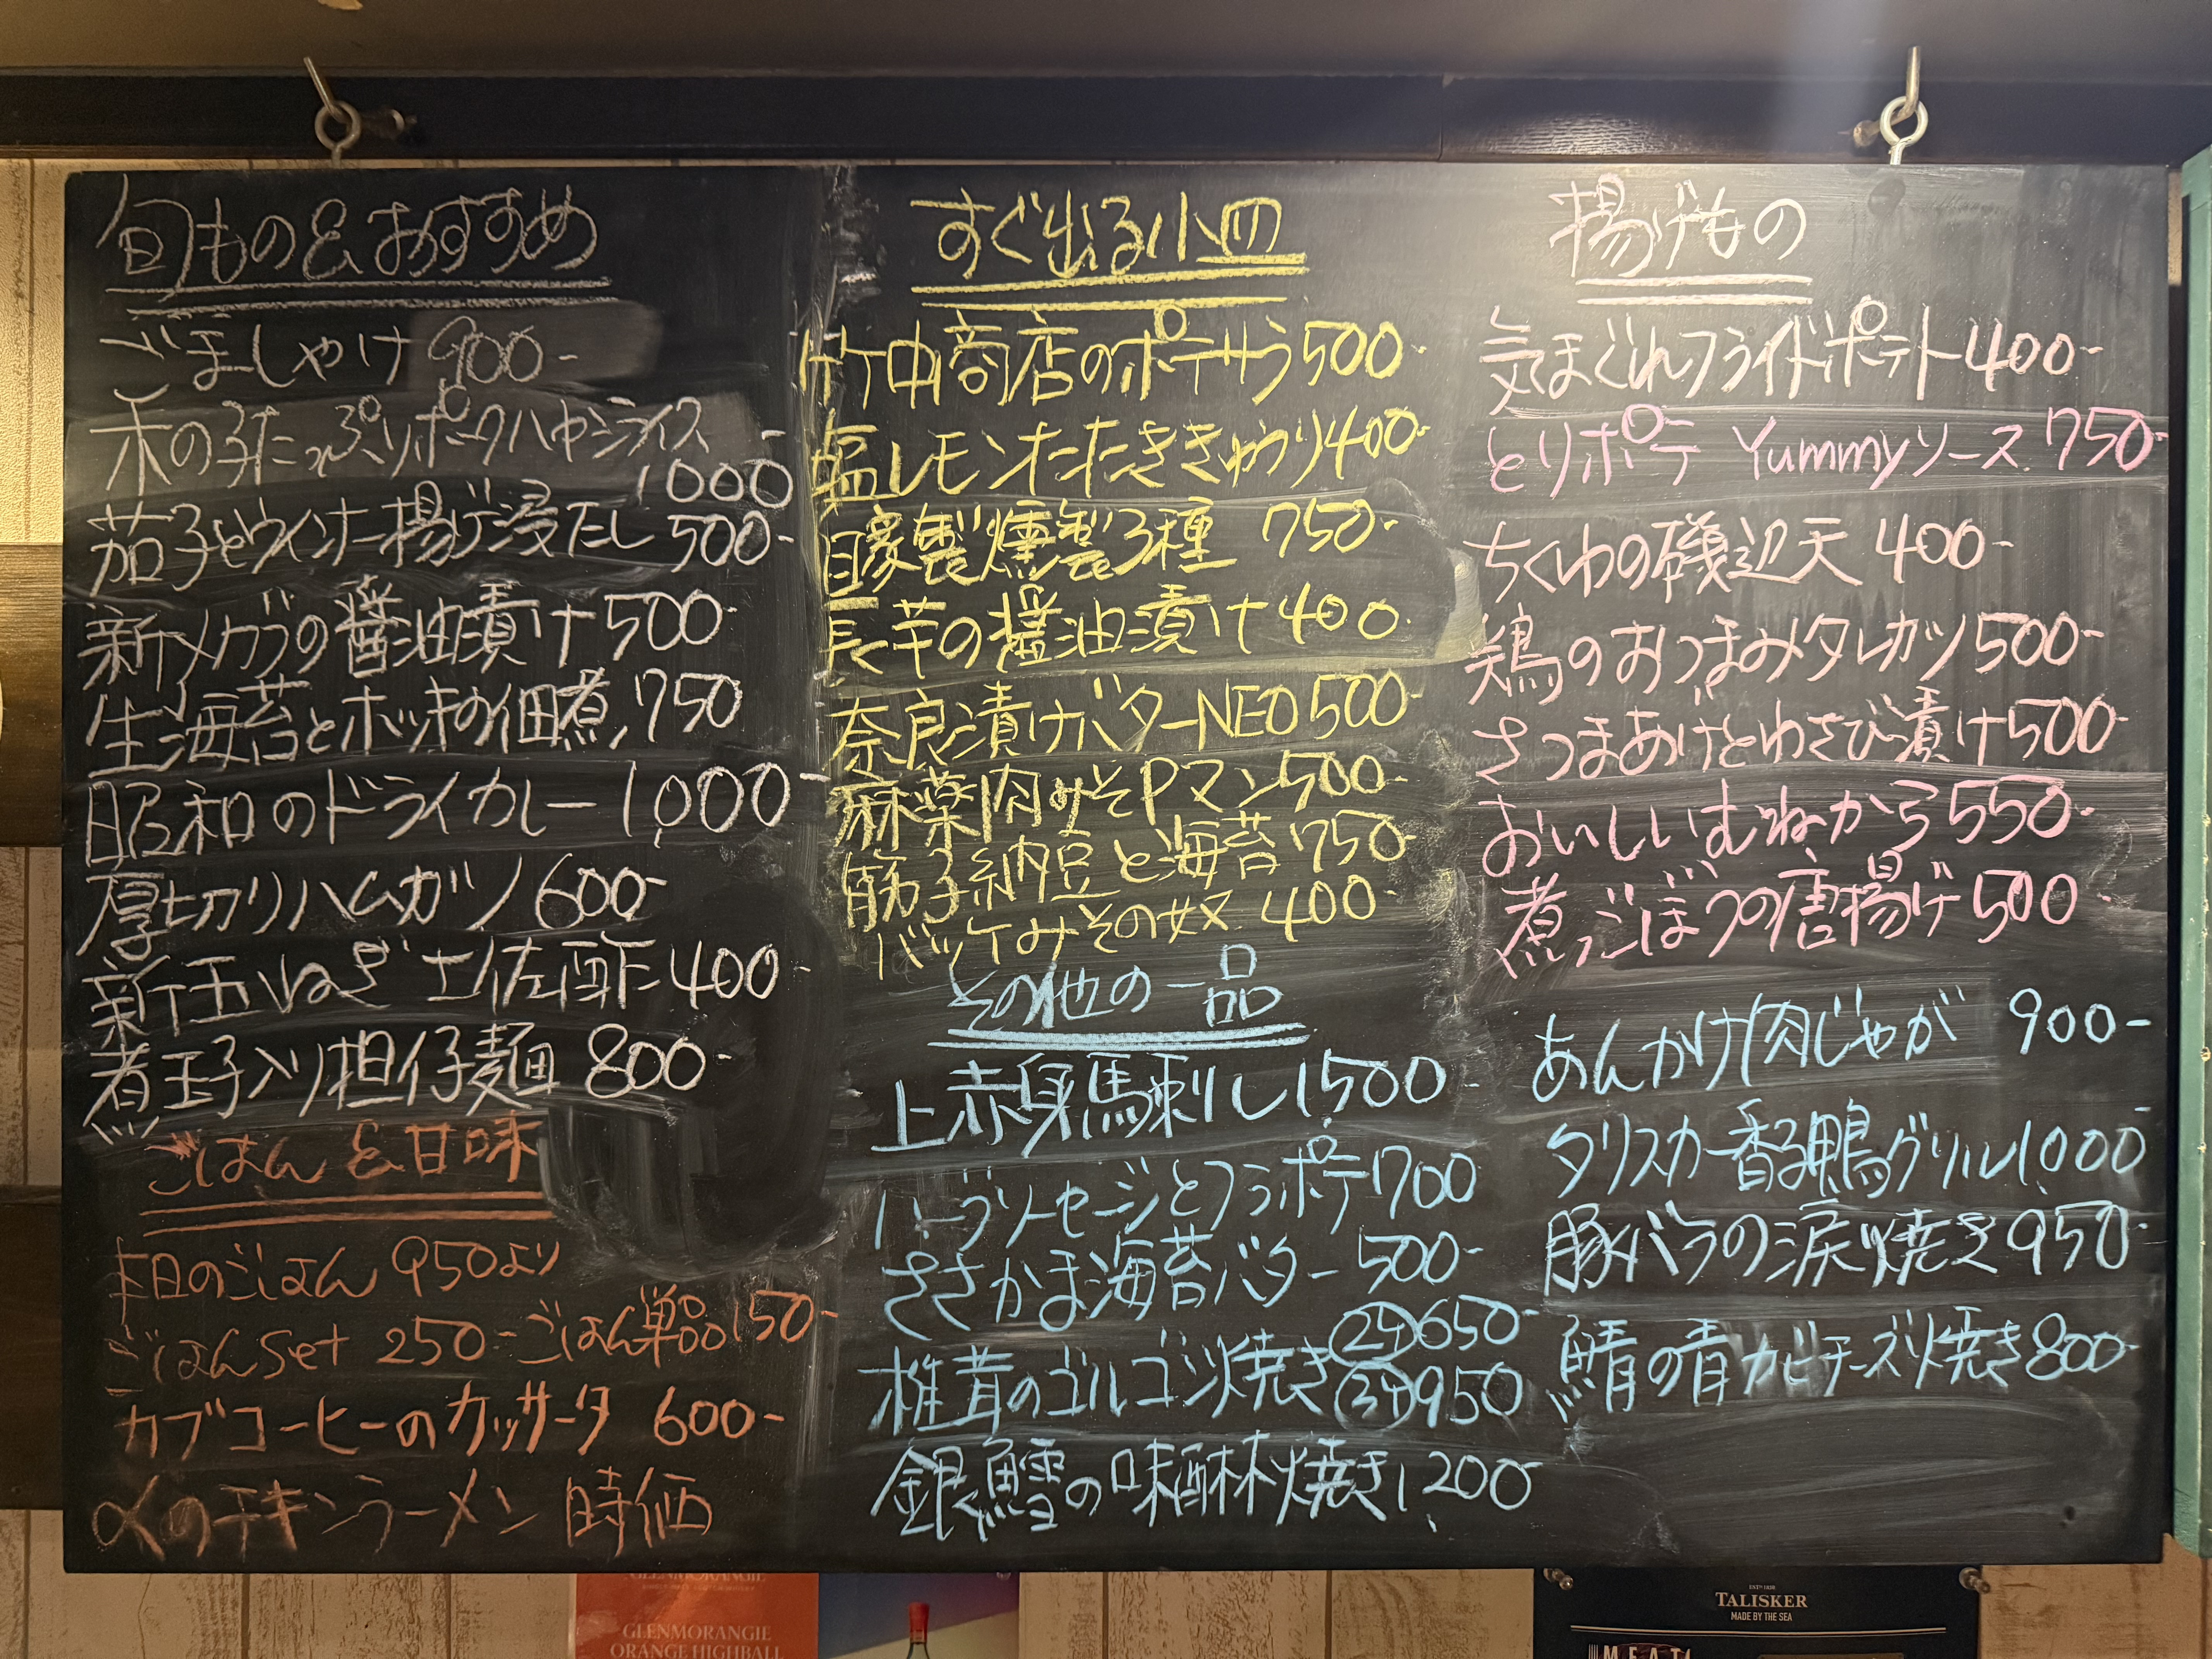 旬もの&おすすめ
ごましゃけ 900-
木の子たっぷりポークハヤシライス
1000-
茄子とウインナー揚げ浸たし 500-
新メカブの醤油漬け 500-
生海苔とホッキの佃煮 750
昭和のドライカレー 1,000-
厚切りハムカツ 600-
新玉ねぎ土佐酢 400-
煮玉子入り担仔麺 800-
ごはん&甘味
本日のごはん 950より
ごはんset 250- ごはん単品150-
カブコーヒーのカッサータ 600-
〆のチキンラーメン 時価
すぐ出る小皿
竹中商店のポテサラ 500-
塩レモンたたききゅうり 400-
自家製燻製3種 750-
長芋の醤油漬け 400-
奈良漬けバターNEO 500-
麻薬肉みそPマン 500-
筋子納豆と海苔 750-
バッケみその奴 400-
その他の一品
上赤身馬刺し 1,500-
ハーブソーセージとフラポテ 1700
ささかま海苔バター 500-
椎茸のゴルゴンゾ焼き
650-
950
銀鱈の味醂焼き 1,200-
揚げもの
気まぐれフライドポテト 400-
とりポテ Yummyソース 750-
ちくわの磯辺天 400-
鶏のおつまみタレカツ 500-
さつまあげとわさび漬け 500-
おいしいむねから 550-
煮ごぼうの唐揚げ 500-
あんかけ肉じゃが 900-
タリスカー香る鴨グリル 1,000-
豚バラの涙焼き 950-
鯖の青カビチーズ焼き 800-
GLENMORANGIE
GLENMORANGIE
ORANGE HIGHBALL
TALISKER
MADE BY THE SEA
MEAT